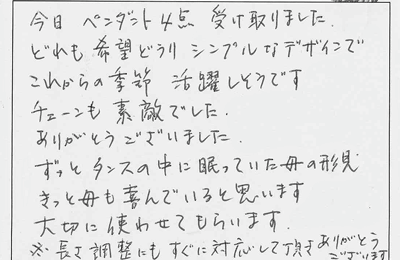 今日 ペンダント4点 受け取りました.
どれも希望どうり シンプルなデザインで
これからの季節 活躍しそうです
チェーンも 素敵でした.
ありがとうございました.
ずっとタンスの中に眠っていた母の形見
きっと母も喜んでいると思います
大切に使わせてもらいます.
※長さ調整にもすぐに対応して頂きありがとう
ございます